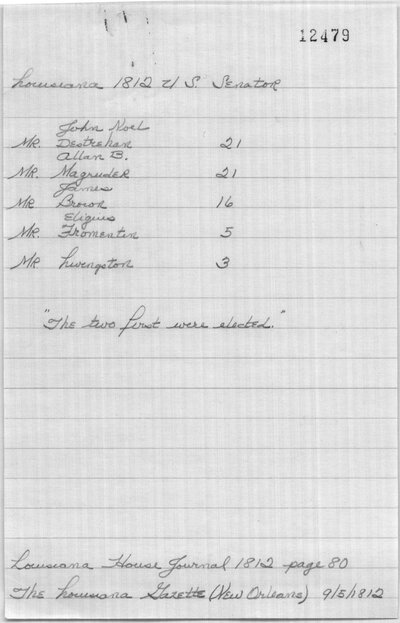 12479
Louisiana 1812 U S. Senator
John Noel
Mr. Destrehan 21
Allan B.
Mr. Magruder 21
James
Mr Brown 16
Eligius
Mr. Fromentin 5
Mr Livingston 3
"The two first were elected."
Louisiana House Journal 1812 page 80
The Louisiana Gazette (New Orleans) 9/5/1812